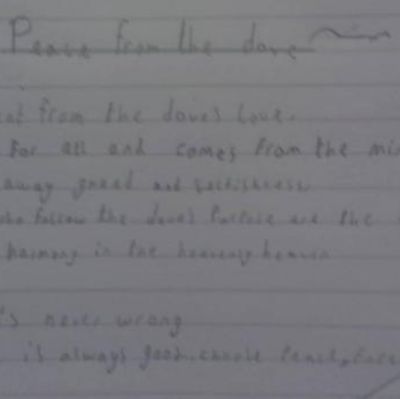 Peace from the dove
eat from the doves love.
For all and comes from the mi
away greed and selfishness
who follow the doves are the
harmony in the heavenly heaven
's never wrong
is always good. choose Peace,